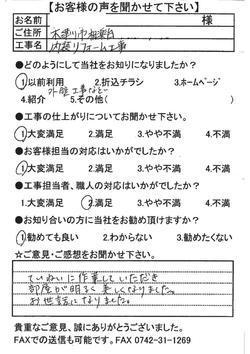 【お客様の声を聞かせて下さい】
お名前 様
ご住所 木津川市相楽台
工事名 内装リフォーム工事
●どのようにして当社をお知りになりましたか？
1.以前利用 2.折込チラシ 3.ホームページ
外壁工事など
4.紹介 5.その他( )
●工事の仕上がりについてお聞かせ下さい。
1.大変満足 2.満足 3.やや不満 4.不満
●お客様担当の対応はいかがでしたか？
1.大変満足 2.満足 3.やや不満 4.不満
●工事担当者、職人の対応はいかがでしたか？
1.大変満足 2.満足 3.やや不満 4.不満
●お知り合いの方に当社をお勧め頂けますか？
1.勧めても良い 2.わからない 3.勧めたくない
☆ご意見・ご感想をお聞かせ下さい。
ていねいに作業していただき
部屋が明るく美しくなりました。
お世話になりました。
貴重なご意見、誠にありがとうございました。
FAXでの送信も可能です。FAX 0742-31-1269